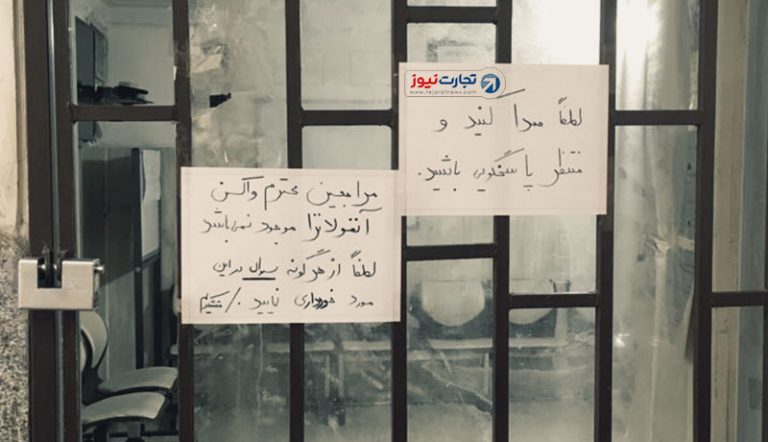 تجارت نیوز
www.tejaratnews.com
لطفاً صدا کنید و
منتظر پاسخگویی باشید.
مراجعین محترم واکسن
آنفولانزا موجود نمی باشد
لطفاً از هر گونه سوال در این
مورد خودداری نمایید ./ متشکریم